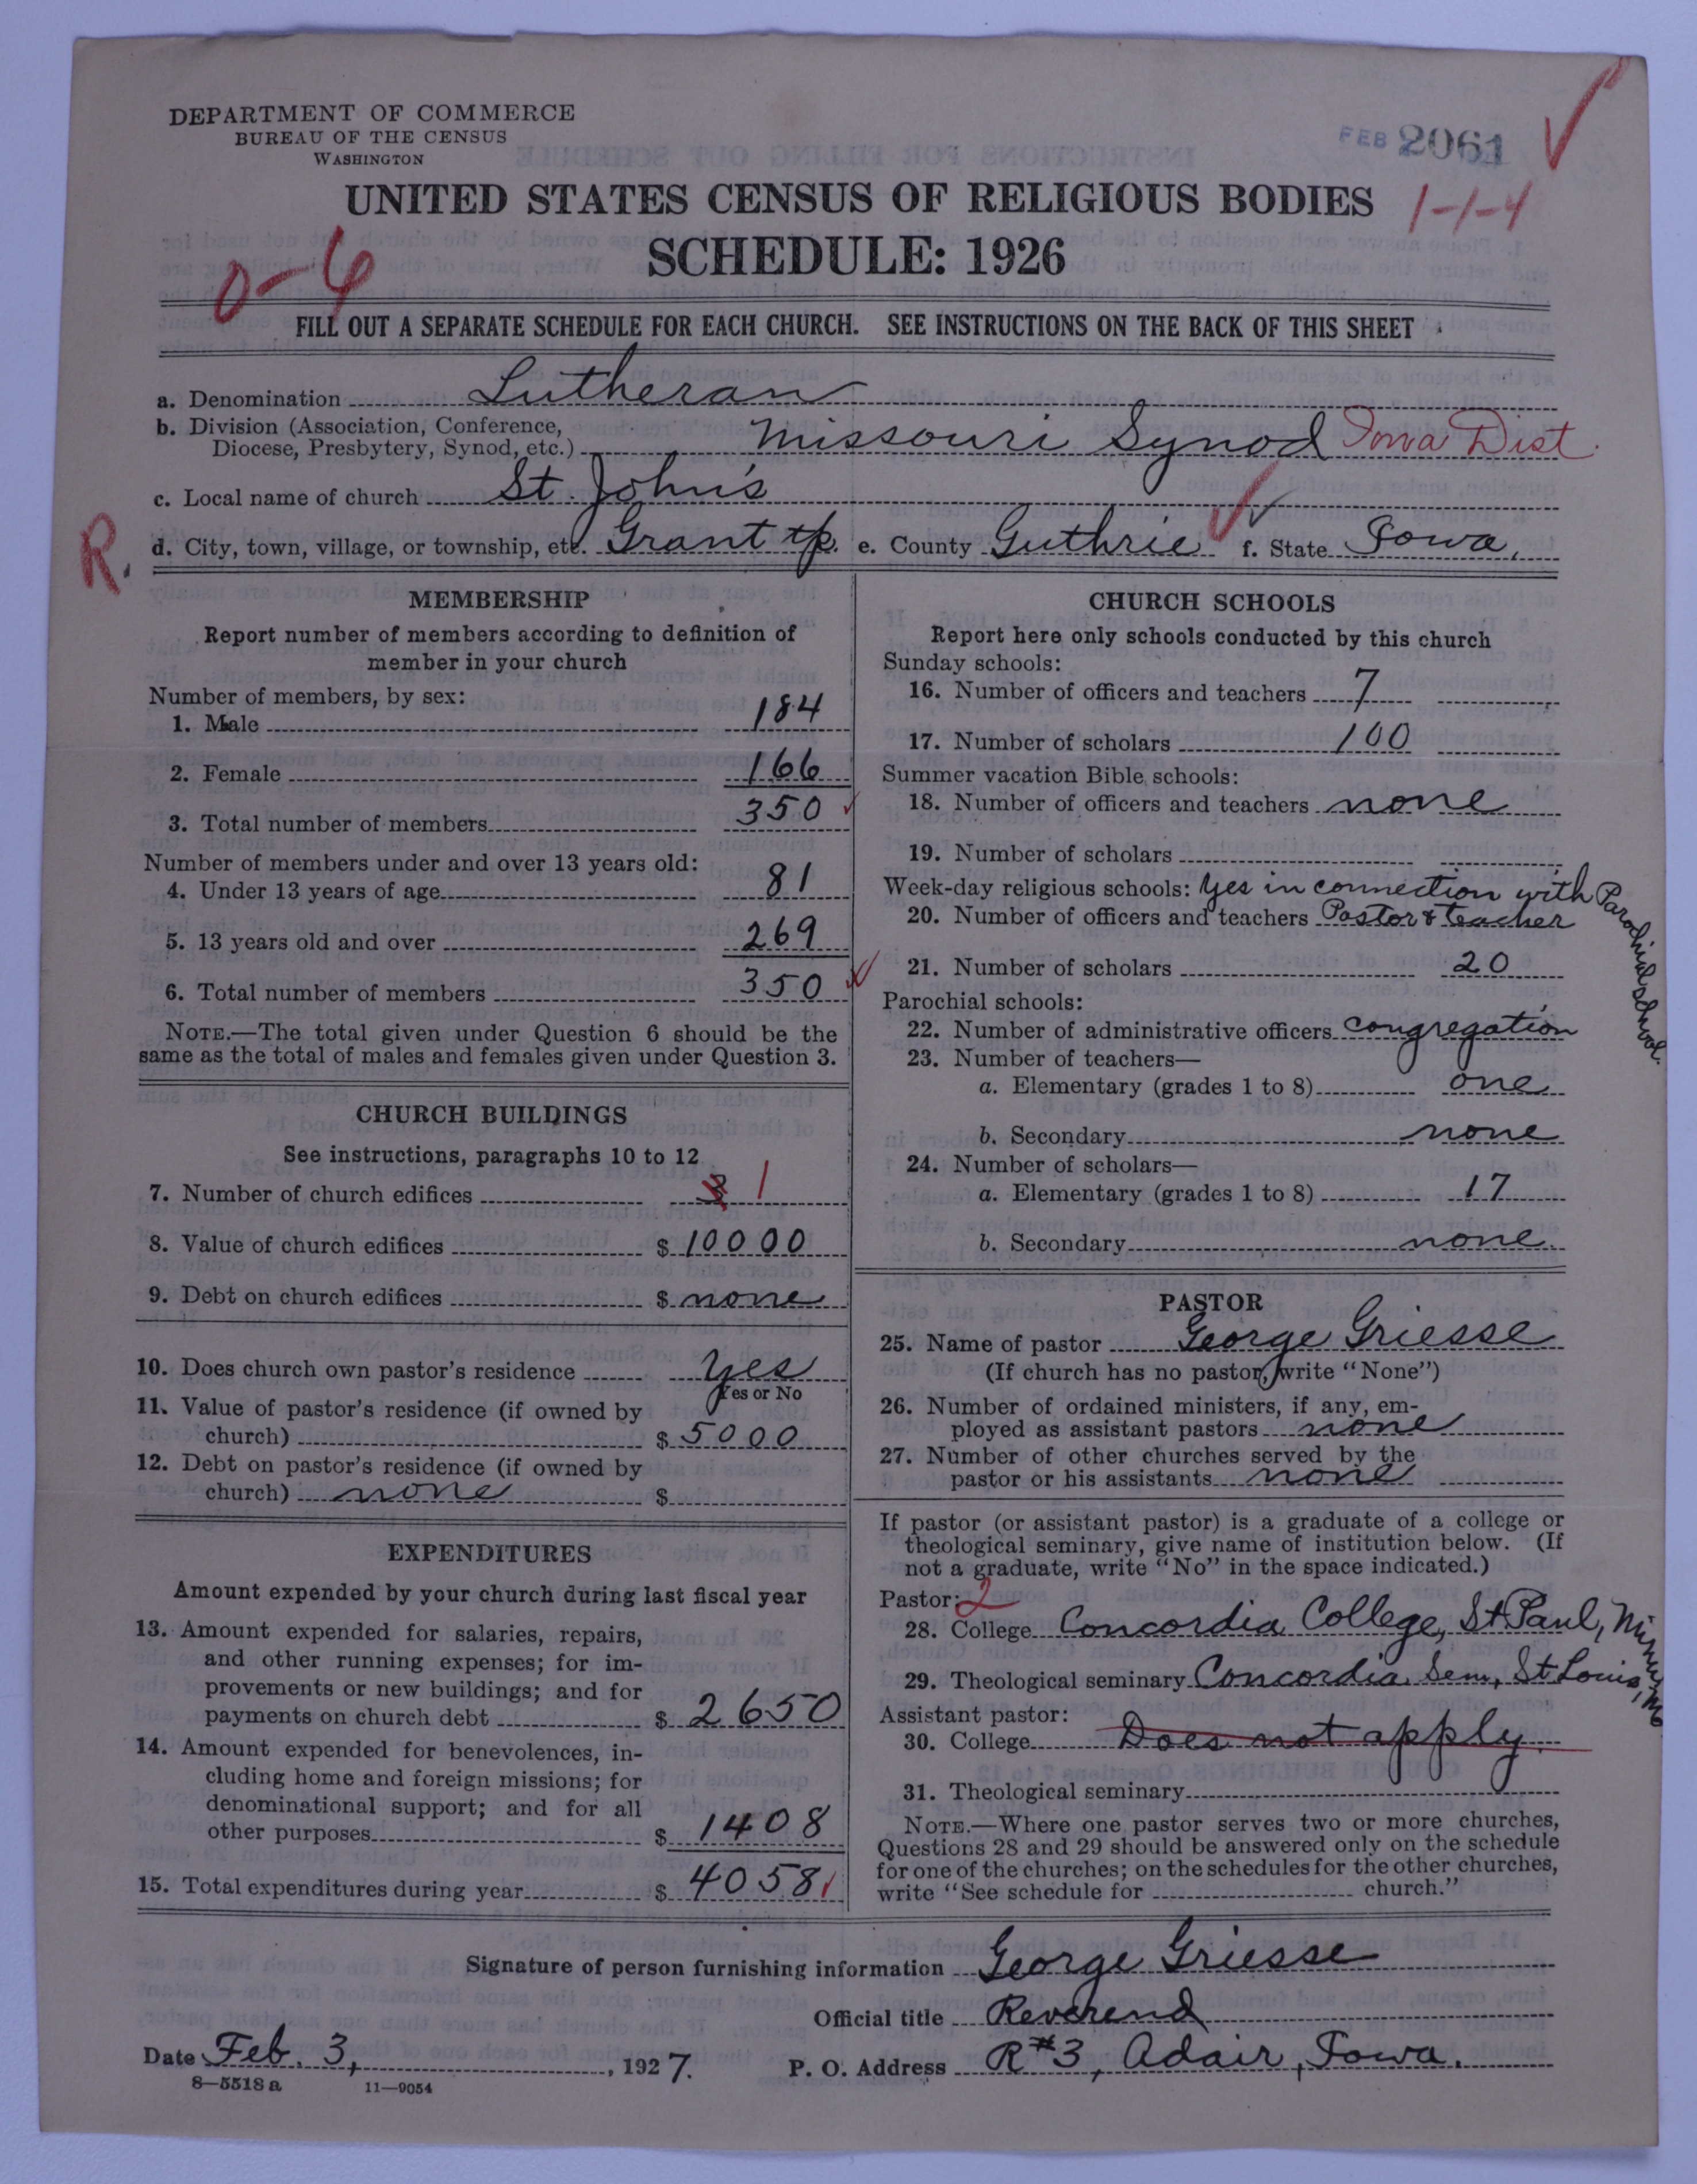 DEPARTMENT OF COMMERCE
BUREAU OF THE CENSUS
WASHINGTON
FEB 2061
UNITED STATES CENSUS OF RELIGIOUS BODIES
1-1-4
SCHEDULE: 1926
0-6
FILL OUT A SEPARATE SCHEDULE FOR EACH CHURCH. SEE INSTRUCTIONS ON THE BACK OF THIS SHEET
a. Denomination Lutheran
b. Division (Association, Conference, Diocese, Presbytery, Synod, etc.) Missouri Synod Iowa Dist.
c. Local name of church St. John's
R.
d. City, town, village, or township, etc. Grant tp. e. County Guthrie f. State Iowa.
MEMBERSHIP
Report number of members according to definition of
member in your church
Number of members, by sex:
1. Male 184
2. Female 166
3. Total number of members 350
Number of members under and over 13 years old:
4. Under 13 years of age 81
5. 13 years old and over 269
6. Total number of members 350
NOTE.—The total given under Question 6 should be the
same as the total of males and females given under Question 3.
CHURCH BUILDINGS
See instructions, paragraphs 10 to 12
7. Number of church edifices 3 1
8. Value of church edifices $ 10000
9. Debt on church edifices $ none
10. Does church own pastor's residence yes
Yes or No
11. Value of pastor's residence (if owned by
church) $ 5000
12. Debt on pastor's residence (if owned by
church) none $
EXPENDITURES
Amount expended by your church during last fiscal year
13. Amount expended for salaries, repairs,
and other running expenses; for im-
provements or new buildings; and for
payments on church debt $ 2650
14. Amount expended for benevolences, in-
cluding home and foreign missions; for
denominational support; and for all
other purposes $ 1408
15. Total expenditures during year $ 4058
CHURCH SCHOOLS
Report here only schools conducted by this church
Sunday schools:
16. Number of officers and teachers 7
17. Number of scholars 100
Summer vacation Bible schools:
18. Number of officers and teachers none
19. Number of scholars
Week-day religious schools: yes in connection with Parochial school.
20. Number of officers and teachers Pastor & teacher
21. Number of scholars 20
Parochial schools:
22. Number of administrative officers congregation
23. Number of teachers—
a. Elementary (grades 1 to 8) one
b. Secondary none
24. Number of scholars—
a. Elementary (grades 1 to 8) 17
b. Secondary none.
PASTOR
25. Name of pastor George Griesse
(If church has no pastor, write "None")
26. Number of ordained ministers, if any, em-
ployed as assistant pastors none
27. Number of other churches served by the
pastor or his assistants none
If pastor (or assistant pastor) is a graduate of a college or
theological seminary, give name of institution below. (If
not a graduate, write "No" in the space indicated.)
Pastor: 2
28. College Concordia College, St. Paul, Minn.
29. Theological seminary Concordia Sem., St. Louis, Mo
Assistant pastor:
30. College Does not apply.
31. Theological seminary
NOTE.—Where one pastor serves two or more churches,
Questions 28 and 29 should be answered only on the schedule
for one of the churches; on the schedules for the other churches,
write "See schedule for church."
Signature of person furnishing information George Griesse
Official title Reverend
Date Feb. 3, 1927. P. O. Address R#3, Adair, Iowa.
8—5518 a 11—9054